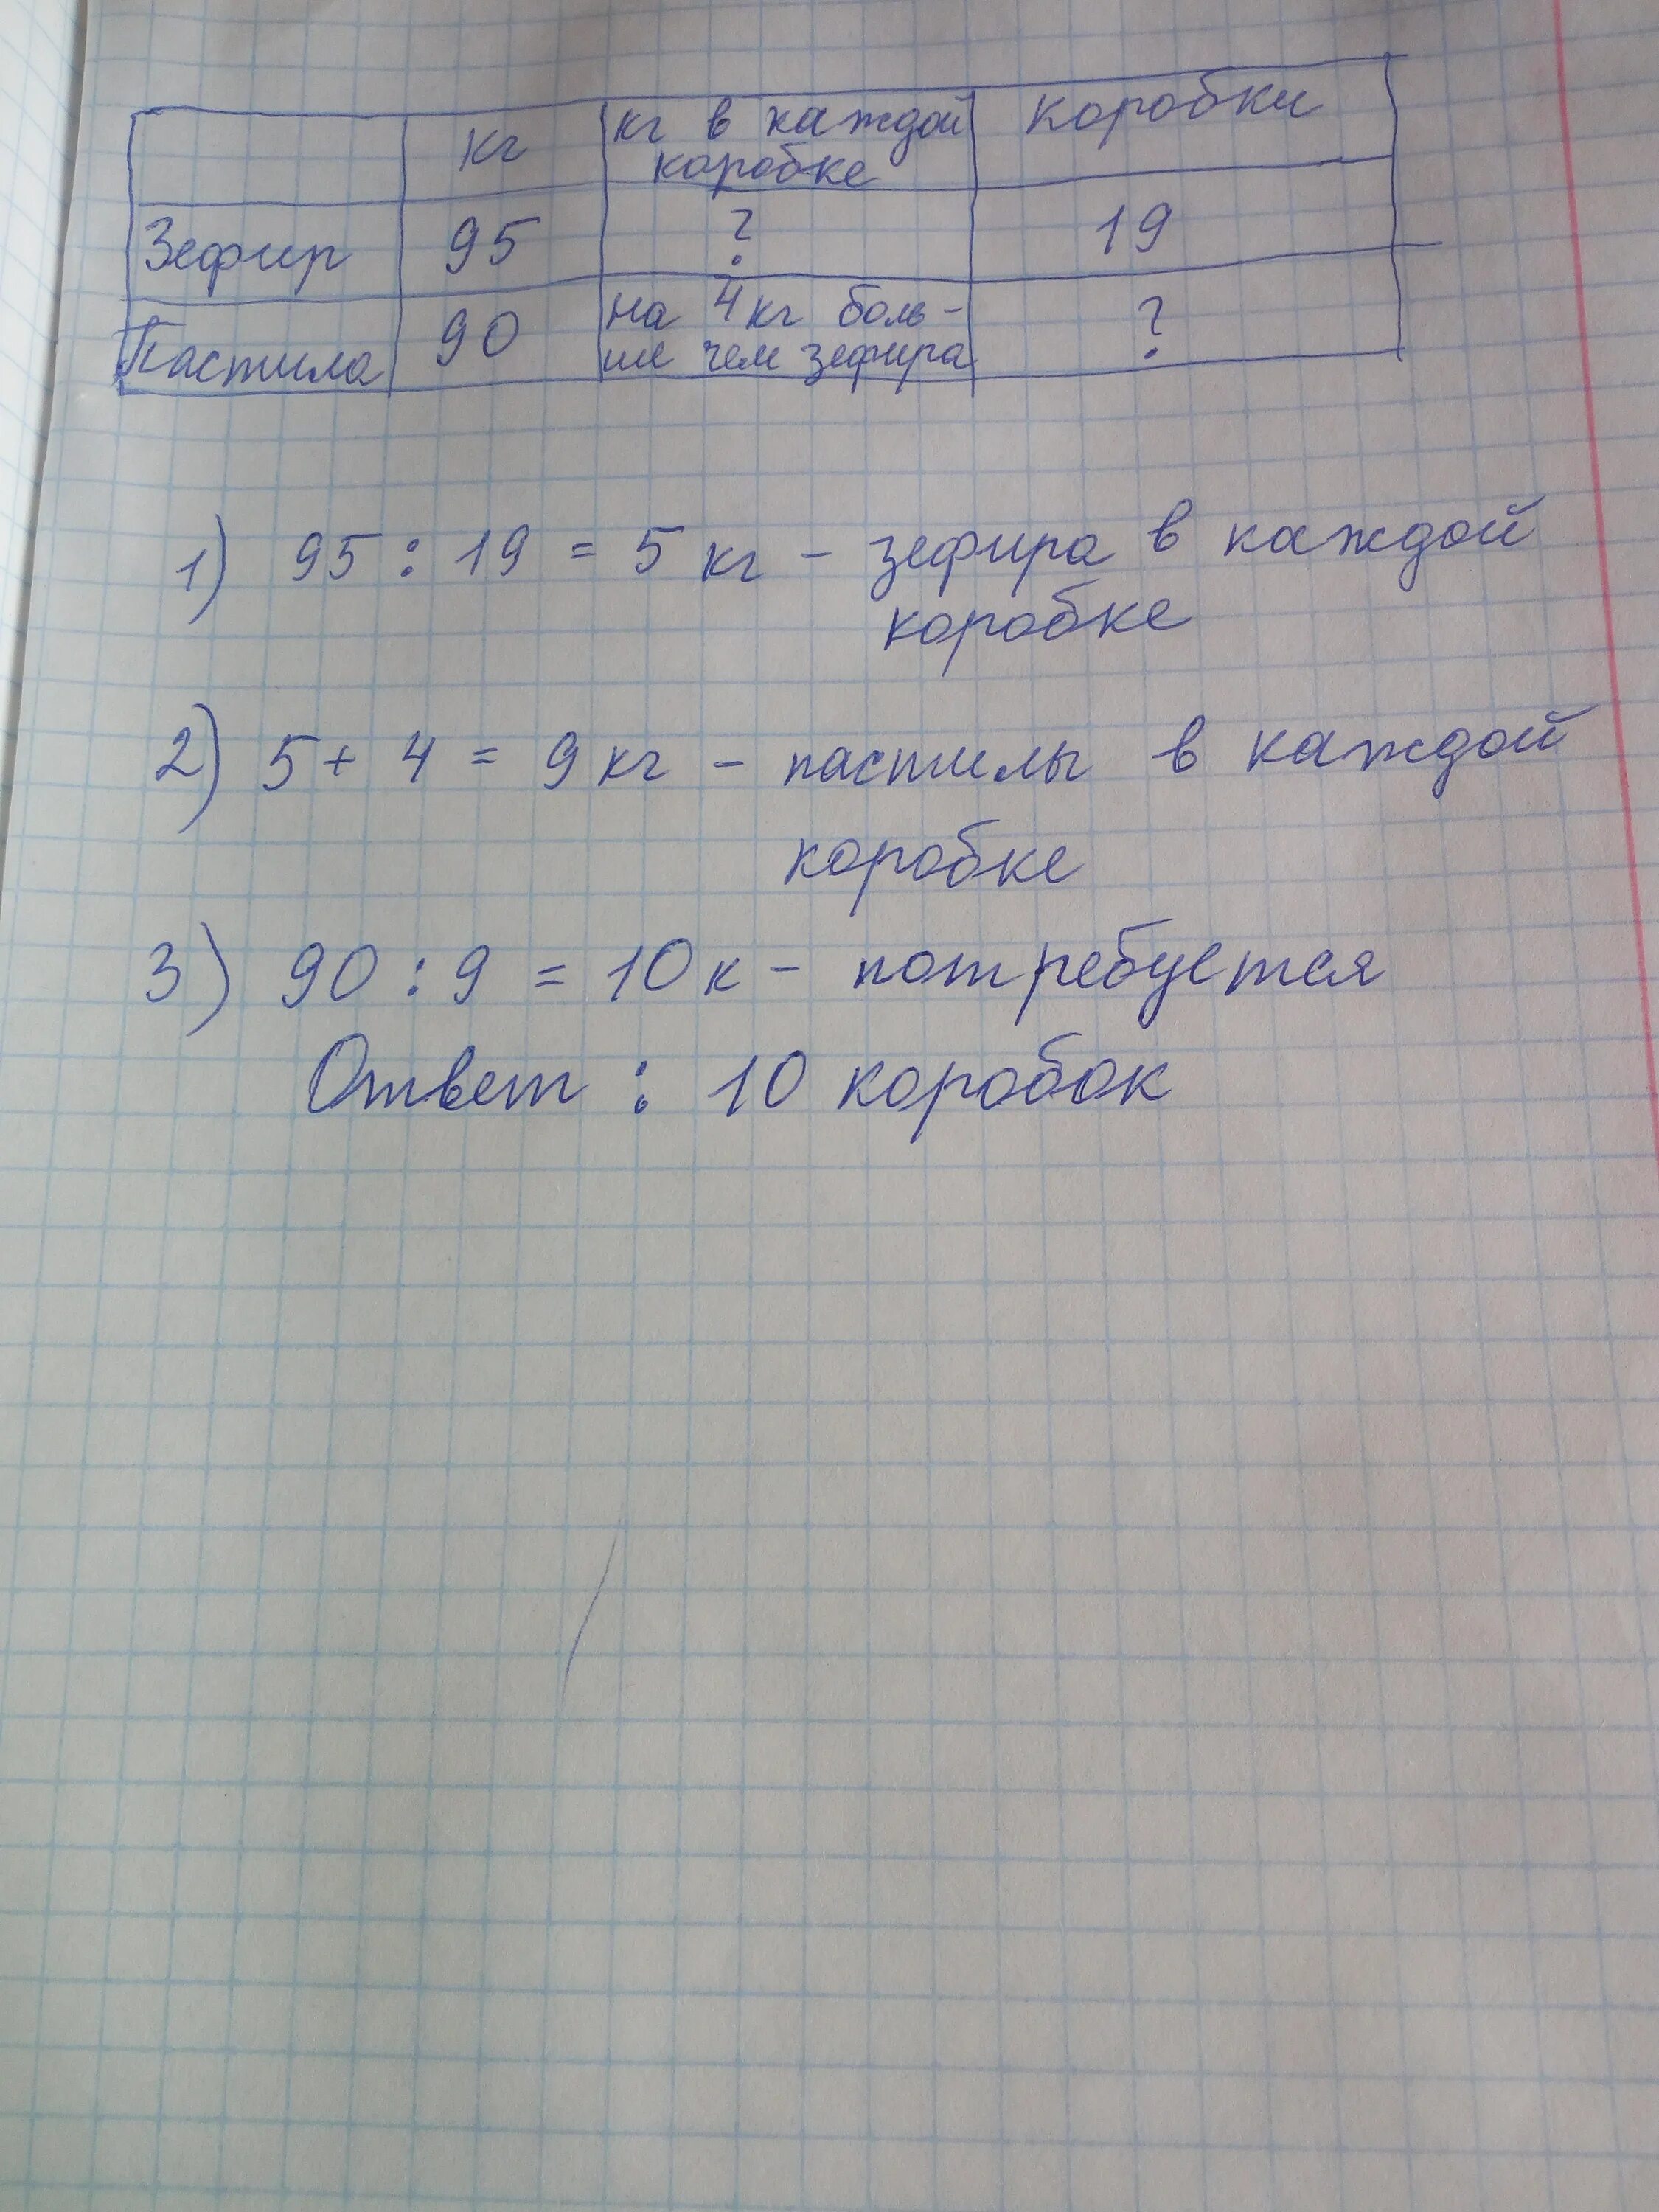 кг кг в каждой коробке коробки
Зефир 95 ? 19
Пастила 90 на 4 кг боль-ше чем зефира ?
1) 95 : 19 = 5 кг - зефира в каждой
коробке
2) 5 + 4 = 9 кг - пастилы в каждой
коробке
3) 90 : 9 = 10 к - потребуется
Ответ : 10 коробок